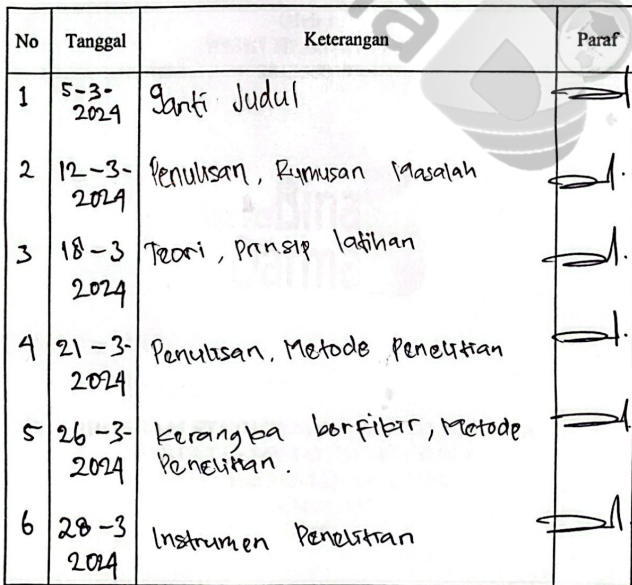 No Tanggal Keterangan Paraf
1 5-3-2024 Ganti Judul
2 12-3-2024 Penulisan, Rumusan Masalah
3 18-3 2024 Teori, Prinsip latihan
4 21-3-2024 Penulisan, Metode Penelitian
5 26-3-2024 Kerangka berfikir, Metode
Penelitian.
6 28-3 2024 Instrumen Penelitian